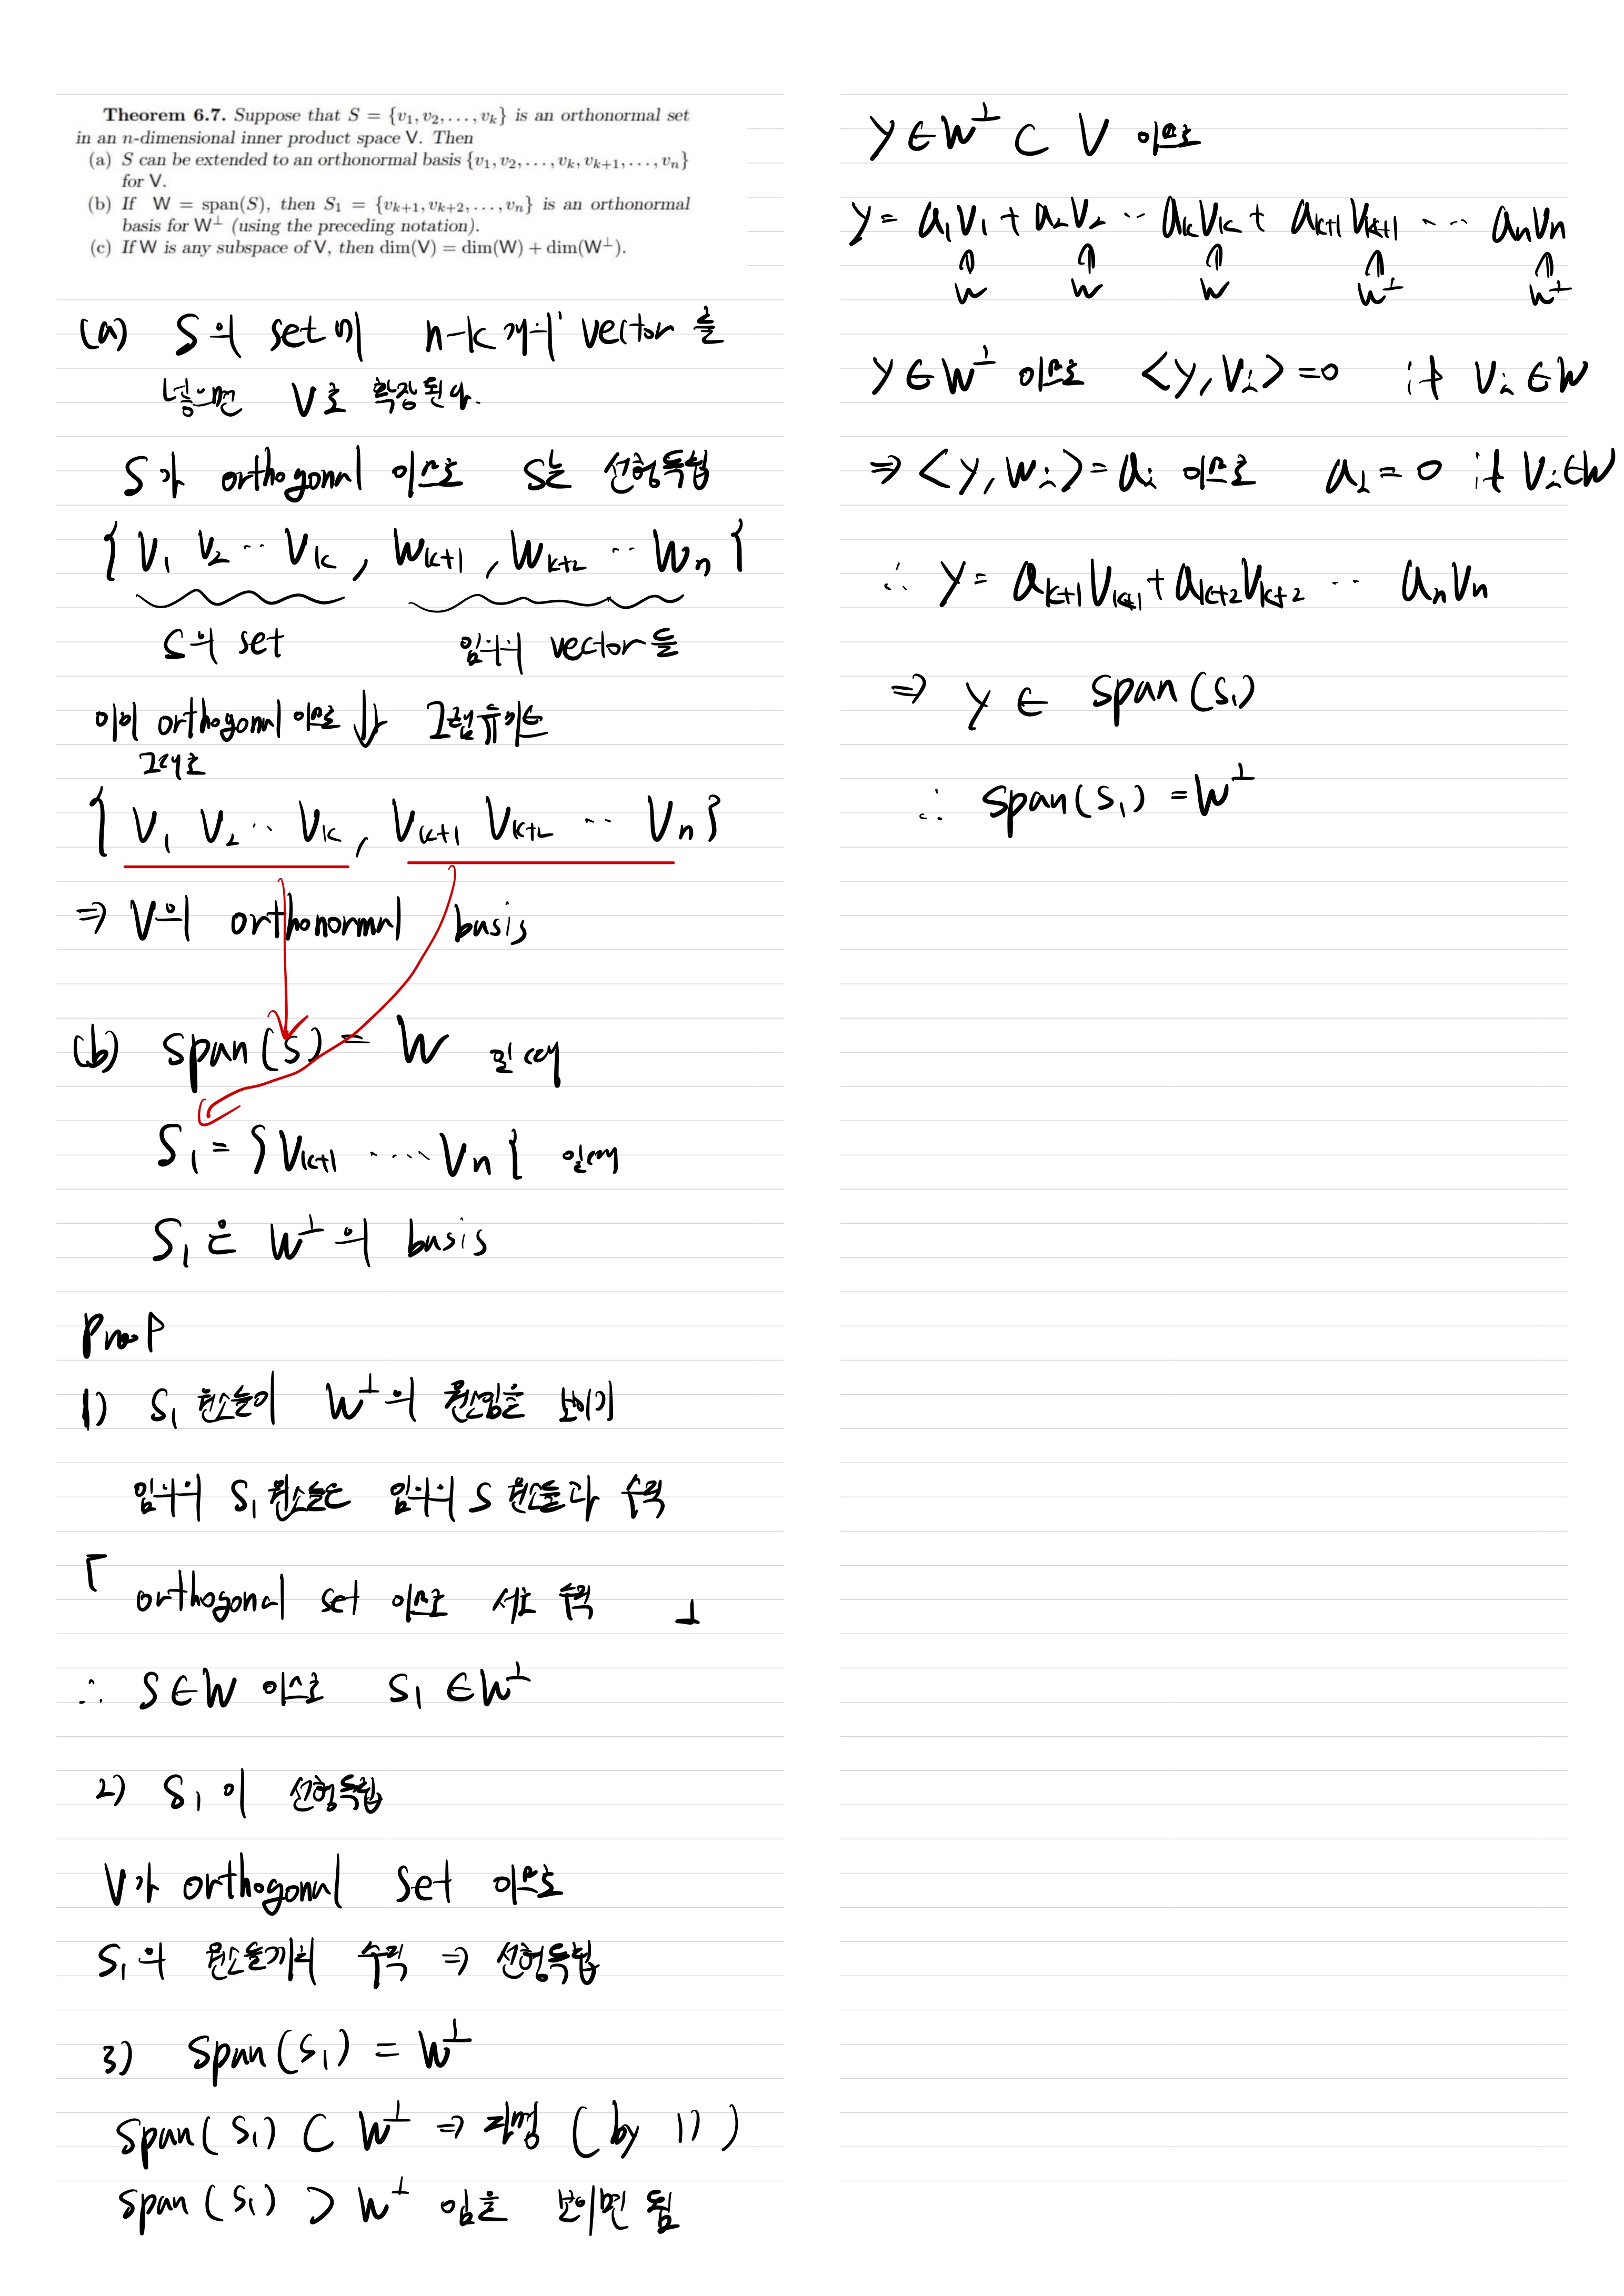 Theorem 6.7. Suppose that S = {v₁, v₂, . . . , vₖ} is an orthonormal set
in an n-dimensional inner product space V. Then
(a) S can be extended to an orthonormal basis {v₁, v₂, . . . , vₖ, vₖ₊₁, . . . , vₙ}
for V.
(b) If W = span(S), then S₁ = {vₖ₊₁, vₖ₊₂, . . . , vₙ} is an orthonormal
basis for W⊥ (using the preceding notation).
(c) If W is any subspace of V, then dim(V) = dim(W) + dim(W⊥).
(a) S의 set에 n-k개의 vector 를
넣으면 V로 확장된다.
S가 orthogonal 이므로 S는 선형독립
{ V₁ V₂ ·· Vₖ , Wₖ₊₁ , Wₖ₊₂ ·· Wₙ }
S의 set 임의의 vector들
이미 orthogonal 이므로 ↓ 그람슈미트
그대로
{ V₁ V₂ ·· Vₖ , Vₖ₊₁ Vₖ₊₂ ·· Vₙ }
⇒ V의 orthonormal basis
(b) span(S) = W 일때
S₁ = { Vₖ₊₁ ···· Vₙ } 일때
S₁은 W⊥의 basis
Proof
1) S₁ 원소들이 W⊥의 원소임을 보이기
임의의 S₁ 원소들은 임의의 S 원소들과 수직
「 orthogonal set 이므로 서로 수직 」
∴ S∈W 이므로 S₁ ∈W⊥
2) S₁이 선형독립
V가 orthogonal set 이므로
S₁의 원소들끼리 수직 ⇒ 선형독립
3) span(S₁) = W⊥
span(S₁) ⊂ W⊥ ⇒ 자명 ( by 1) )
span(S₁) ⊃ W⊥ 임을 보이면 됨
y∈W⊥ ⊂ V 이므로
y= a₁V₁ + a₂V₂ ·· aₖVₖ + aₖ₊₁Vₖ₊₁ ··· aₙVₙ
⇑ ⇑ ⇑ ⇑ ⇑
W W W W⊥ W⊥
y∈W⊥ 이므로 <y, Vᵢ> =0 if Vᵢ ∈W
⇒ <y, Wᵢ> = aᵢ 이므로 aᵢ = 0 if Vᵢ∈W
∴ y= aₖ₊₁Vₖ₊₁+aₖ₊₂Vₖ₊₂ ·· aₙVₙ
⇒ y ∈ span(S₁)
∴ span(S₁) =W⊥